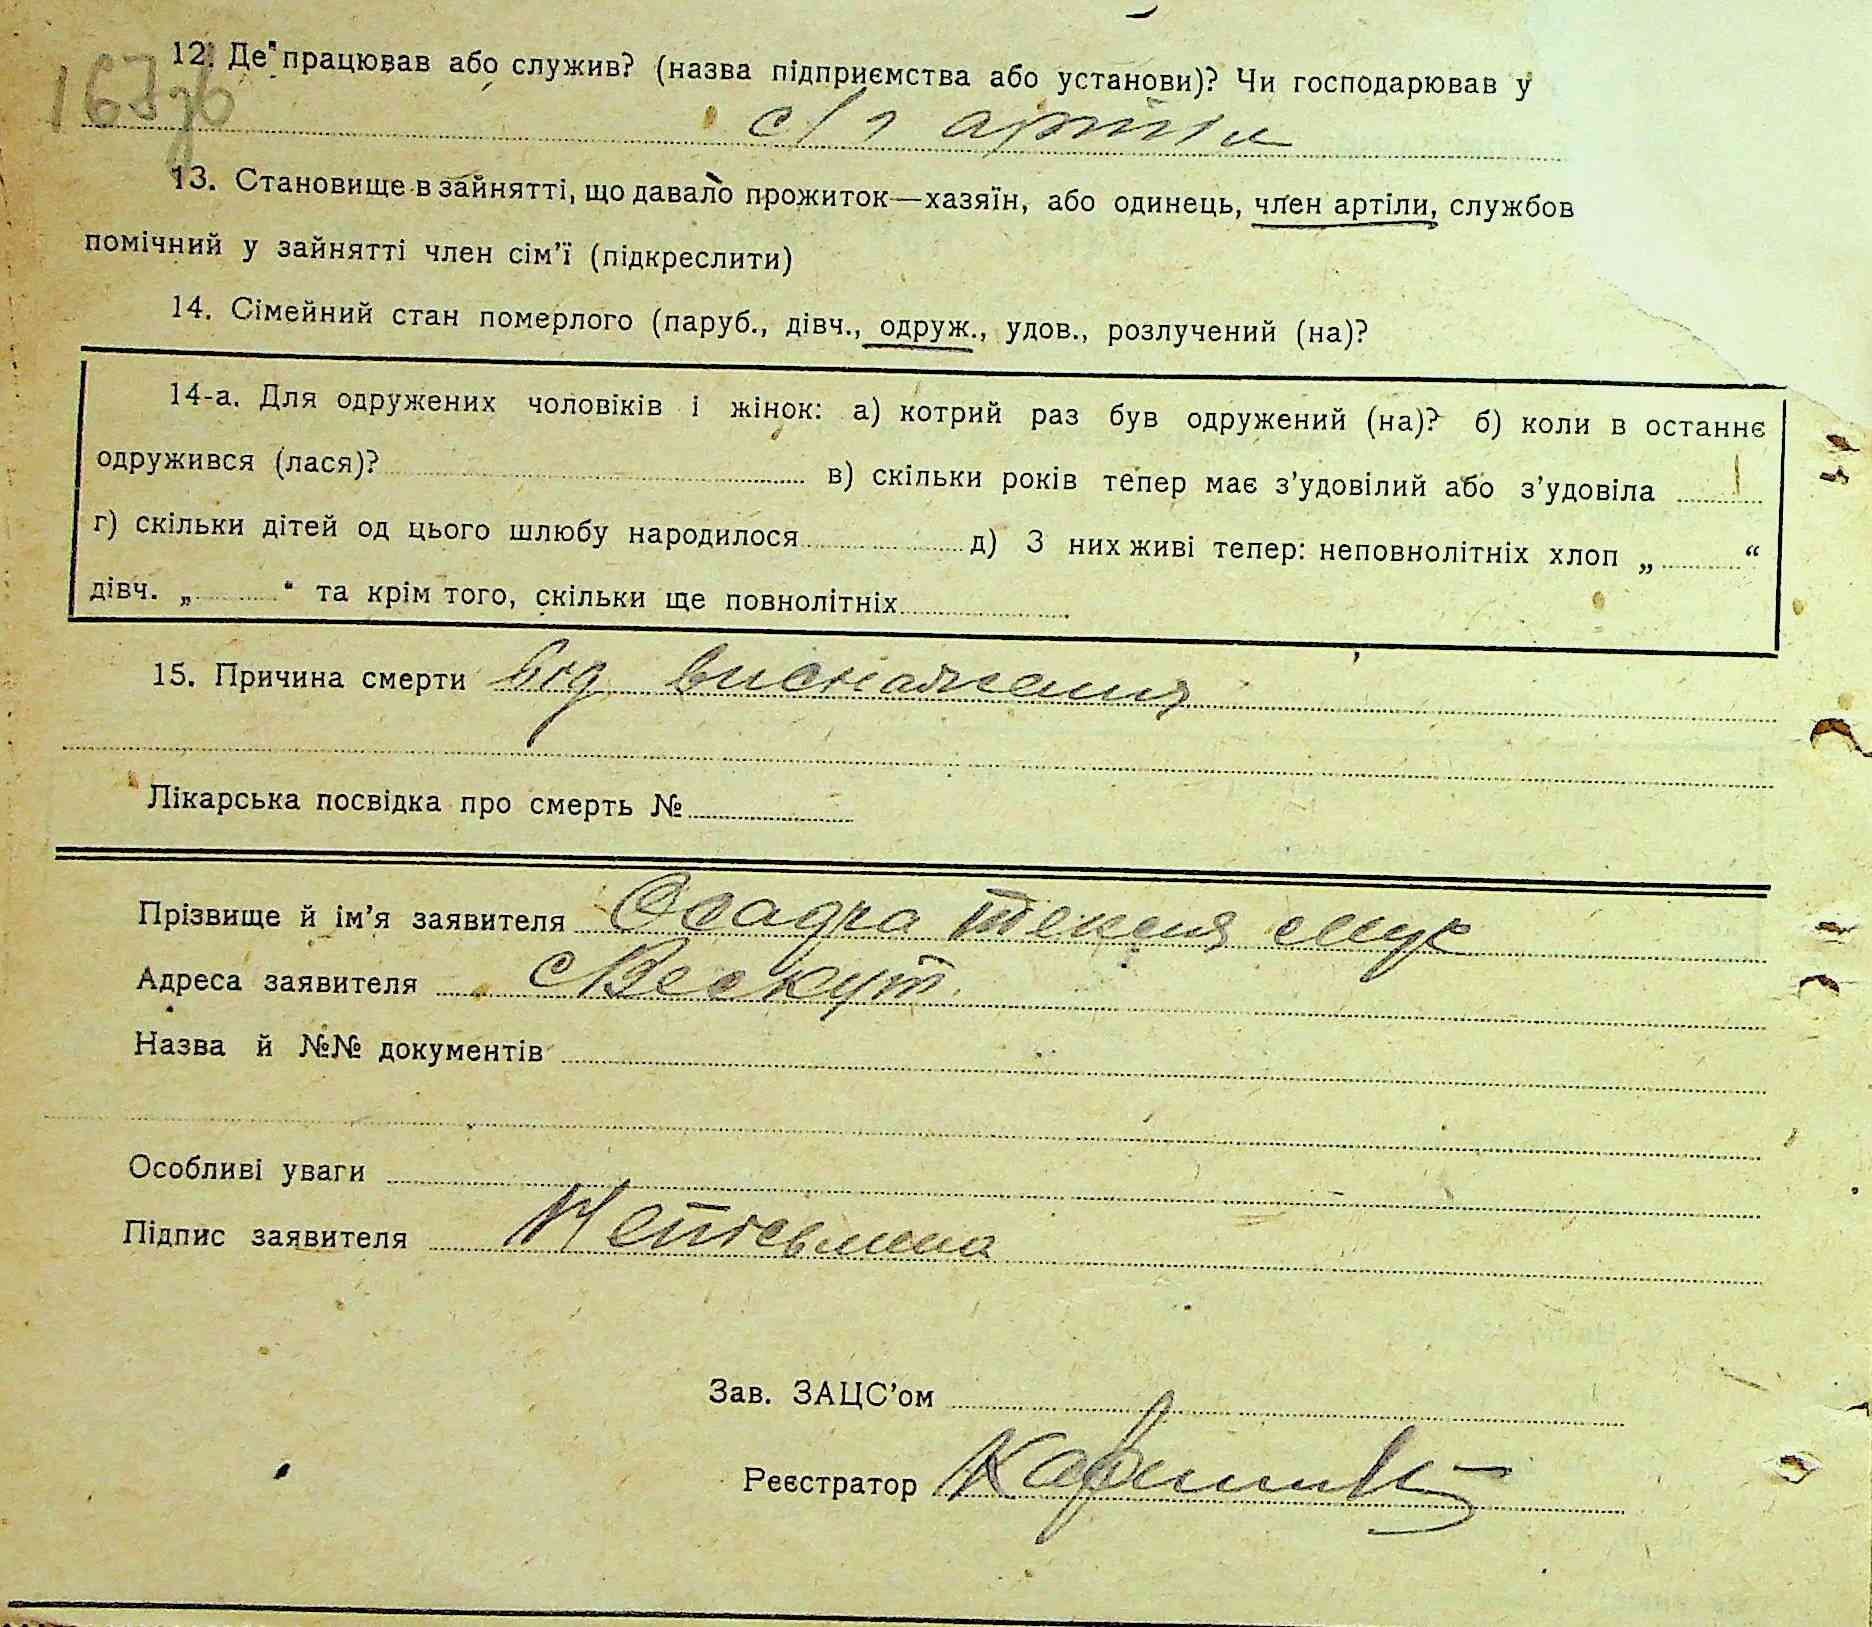 167 зв
12. Де працював або служив? (назва підприємства або установи)? Чи господарював у
с/г артіли
13. Становище в зайнятті, що давало прожиток—хазяїн, або одинець, член артіли, службов
помічний у зайнятті член сім'ї (підкреслити)
14. Сімейний стан померлого (паруб., дівч., одруж., удов., розлучений (на)?
14-а. Для одружених чоловіків і жінок: а) котрий раз був одружений (на)? б) коли в останнє
одружився (лася)? в) скільки років тепер має з'удовілий або з'удовіла
г) скільки дітей од цього шлюбу народилося д) З них живі тепер: неповнолітніх хлоп „ “
дівч. „ “ та крім того, скільки ще повнолітніх
15. Причина смерти від виснаження
Лікарська посвідка про смерть №
Прізвище й ім'я заявителя Осадча Текля
Адреса заявителя с Вескут
Назва й №№ документів
Особливі уваги
Підпис заявителя Неписьмена
Зав. ЗАЦС'ом
Реєстратор